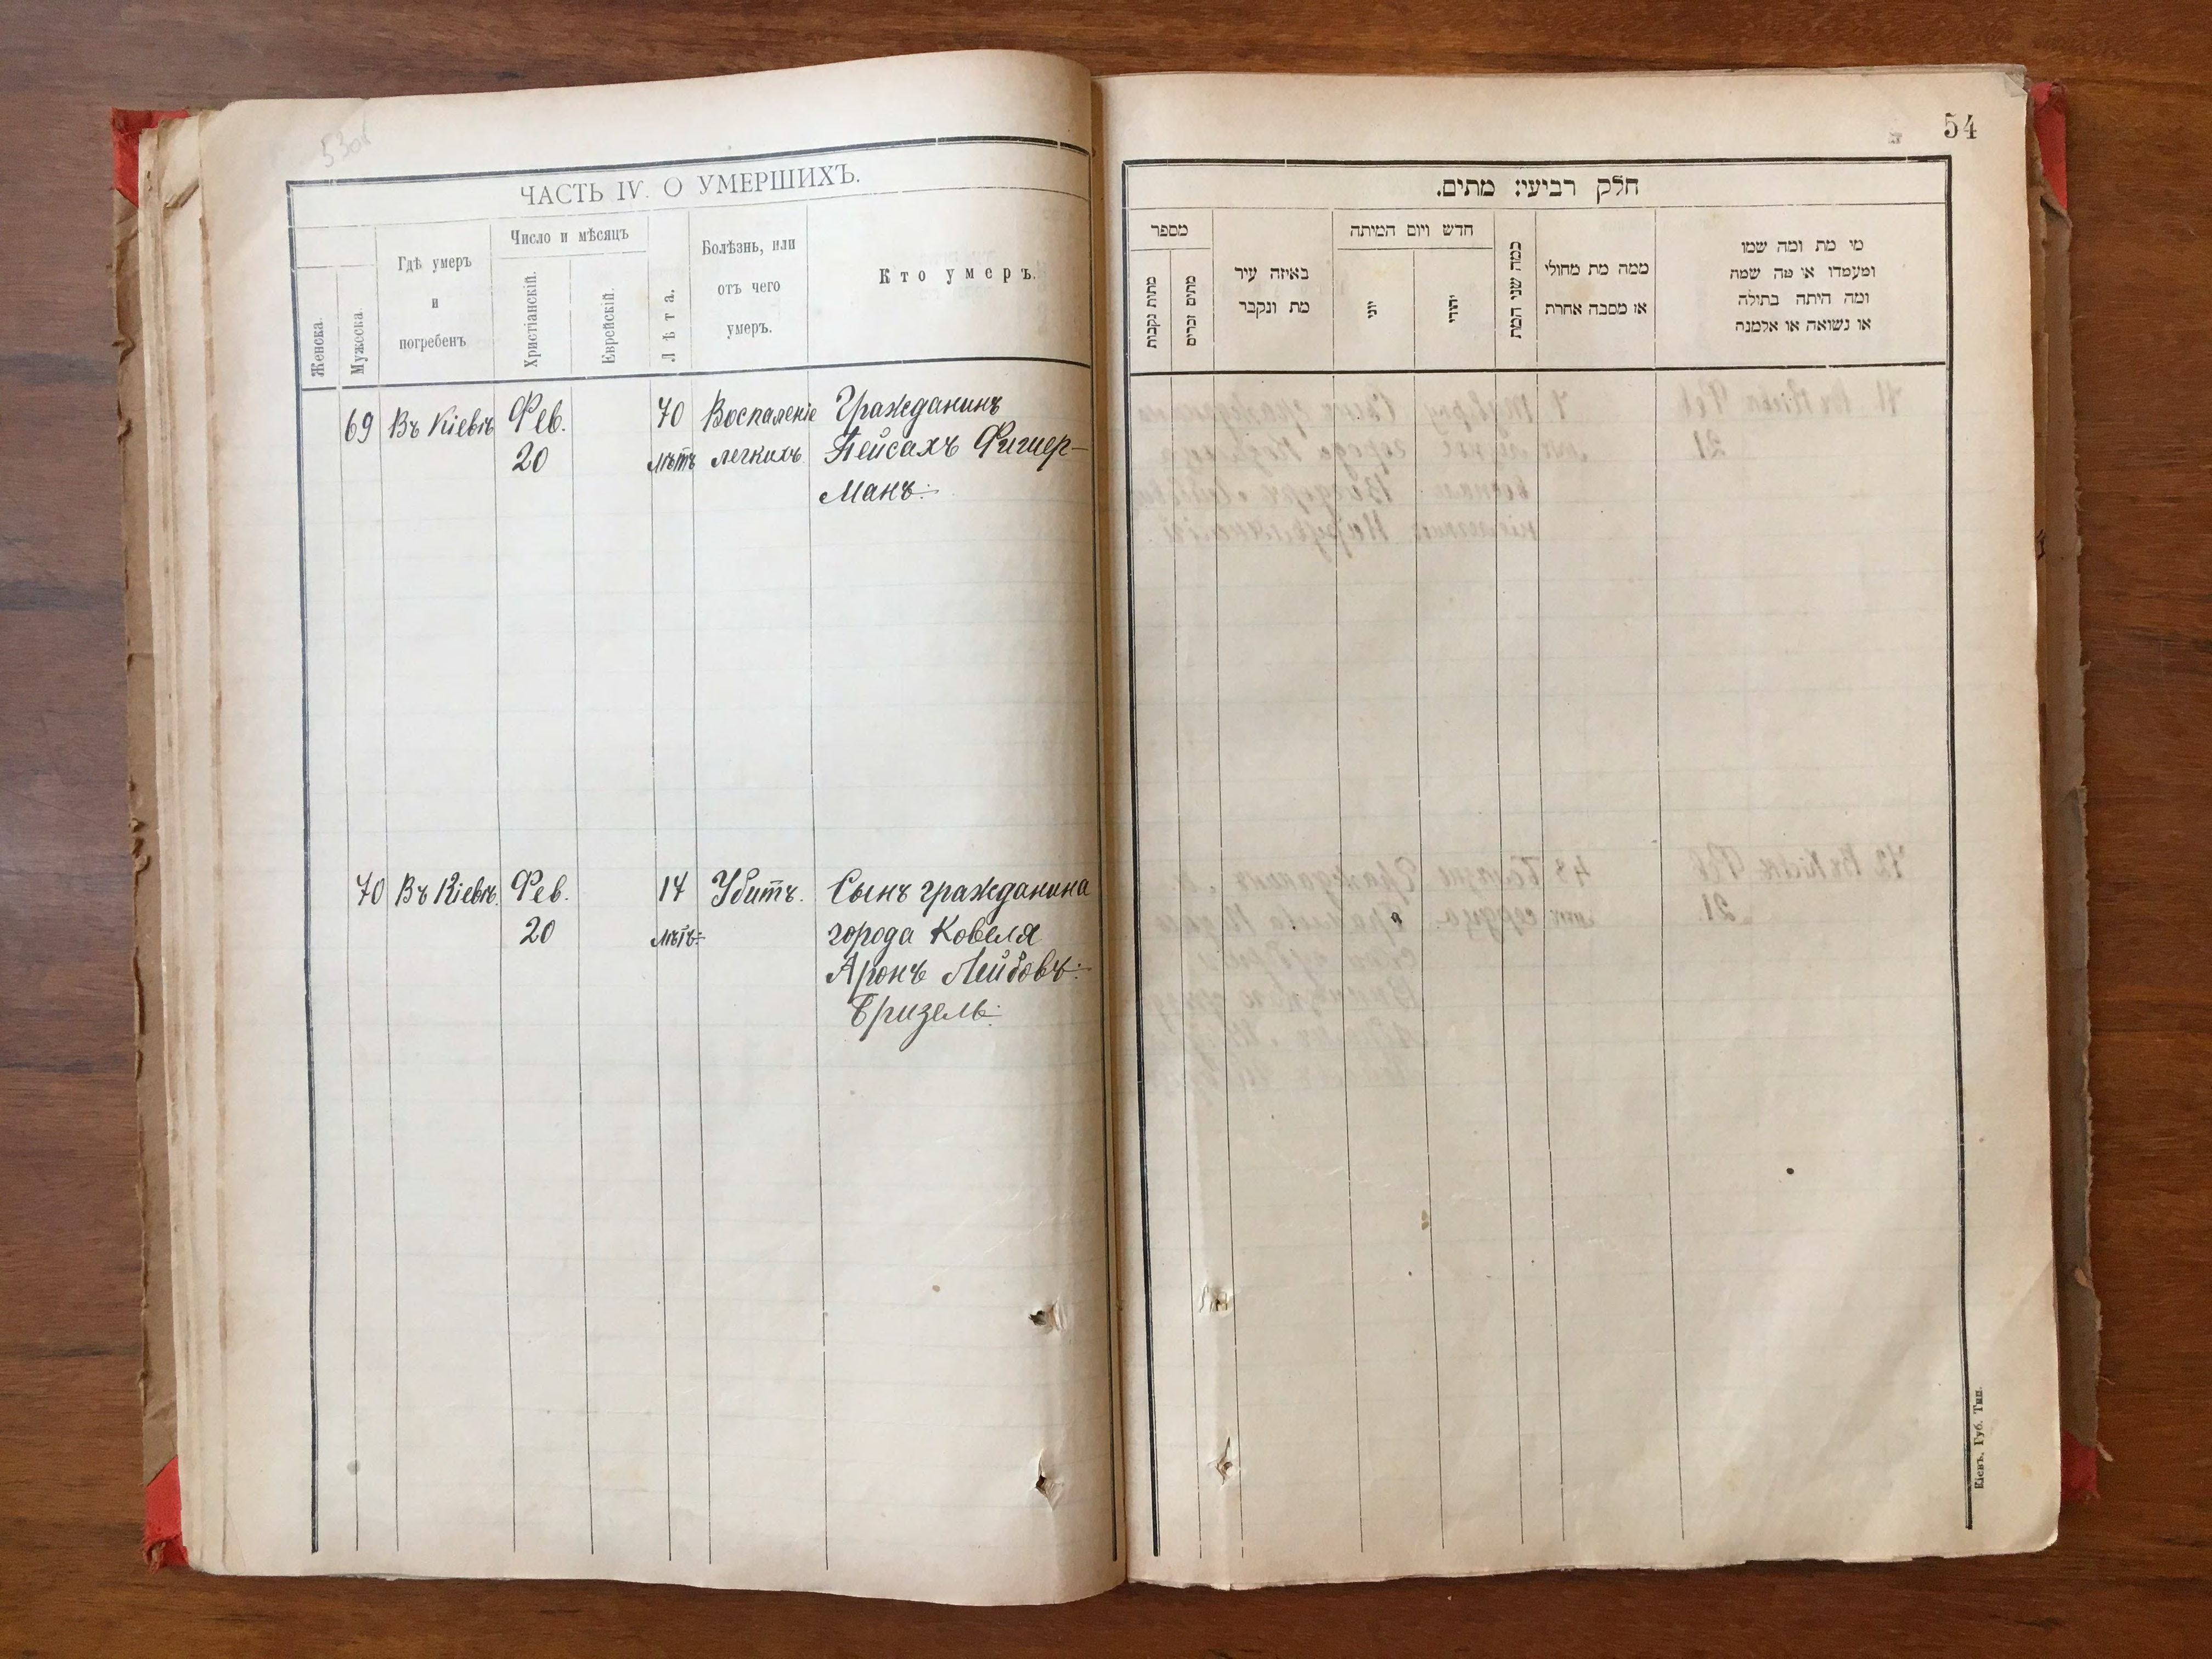 53об
ЧАСТЬ IV. О УМЕРШИХЪ.
Женска.
Мужеска.
Гдѣ умеръ
и
погребенъ
Число и мѣсяцъ
Христіанскій.
Еврейскій.
Лѣта.
Болѣзнь, или
отъ чего
умеръ.
Кто умеръ.
69 Въ Кіевѣ Фев. 70 Воспаленіе Гражданинъ
20 лѣтъ легкихъ Пейсахъ Фишер-
манъ.
70 Въ Кіевѣ. Фев. 14 Убитъ. Сынъ гражданина
20 лѣтъ города Ковеля
Аронъ Лейбовъ
Бризель.
54
חלק רביעי: מתים.
מספר
מתות נקבות
מתים זכרים
באיזה עיר
מת ונקבר
חדש ויום המיתה
יוני
יהודי
כמה שני המת
ממה מת מחולי
או מסבה אחרת
מי מת ומה שמו
ומעמדו או מה שמה
ומה היתה בתולה
או נשואה או אלמנה
Кіевъ, Губ. Тип.